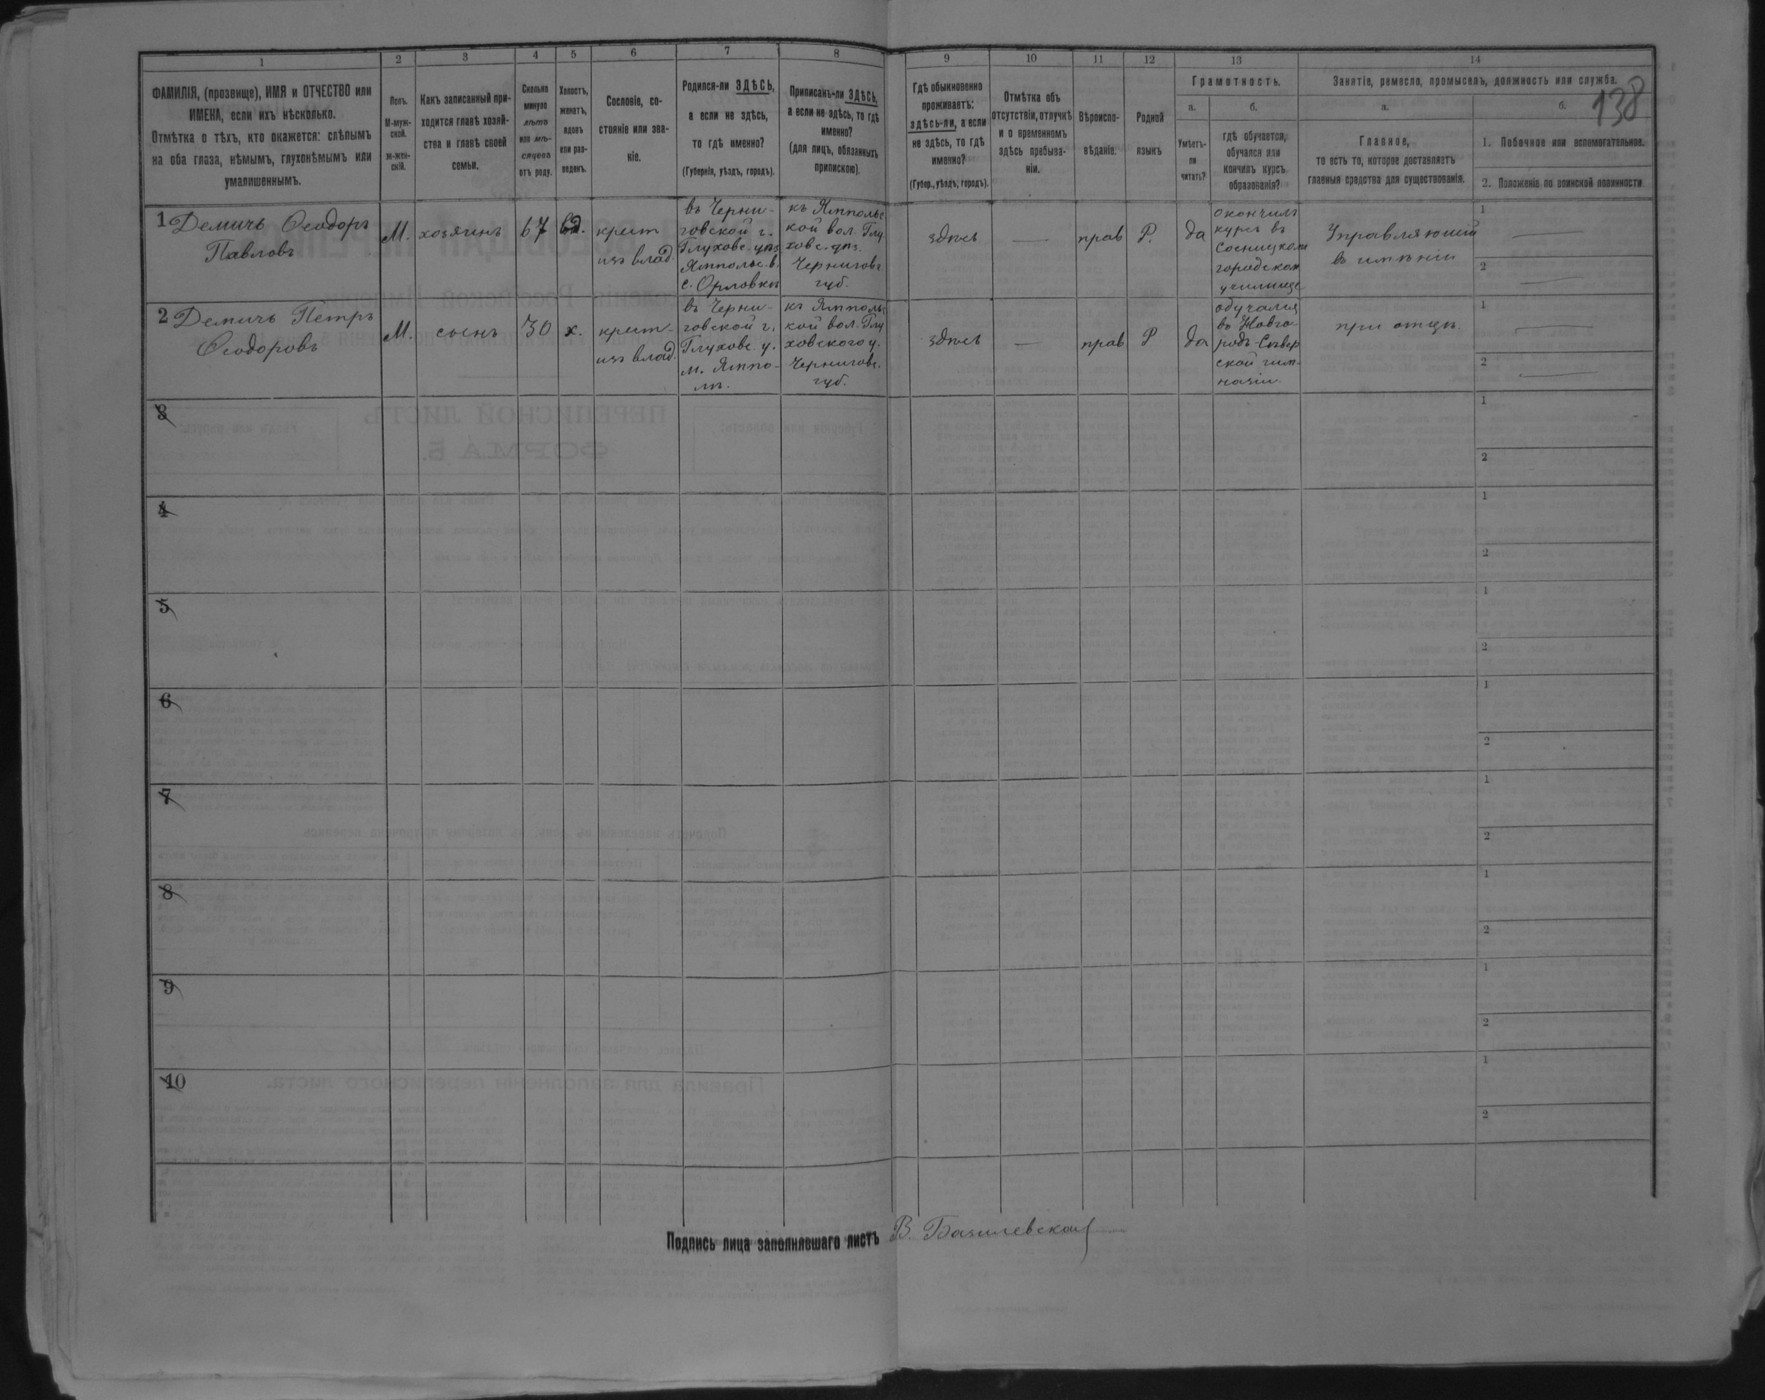 138
1 2 3 4 5 6 7 8 9 10 11 12 13 14
ФАМИЛІЯ, (прозвище), ИМЯ и ОТЧЕСТВО или
ИМЕНА, если ихъ нѣсколько.
Отмѣтка о тѣхъ, кто окажется: слѣпымъ
на оба глаза, нѣмымъ, глухонѣмымъ или
умалишеннымъ.
Полъ.
М-муж-
ской.
ж-жен-
скій.
Какъ записанный при-
ходится главѣ хозяй-
ства и главѣ своей
семьи.
Сколько
минуло
лѣтъ
или мѣ-
сяцевъ
отъ роду.
Холостъ,
женатъ,
вдовъ
или раз-
веденъ.
Сословіе, со-
стояніе или зва-
ніе.
Родился-ли ЗДѢСЬ,
а если не здѣсь,
то гдѣ именно?
(Губернія, уѣздъ, городъ).
Приписанъ-ли ЗДѢСЬ,
а если не здѣсь, то гдѣ
именно?
(для лицъ, обязанныхъ
припискою).
Гдѣ обыкновенно
проживаетъ:
здѣсь-ли, а если
не здѣсь, то гдѣ
именно?
(Губер., уѣздъ, городъ).
Отмѣтка объ
отсутствіи, отлучкѣ
и о временномъ
здѣсь пребыва-
ніи.
Вѣроиспо-
вѣданіе.
Родной
языкъ
Грамотность.
а.
Умѣетъ-
ли
читать?
б.
гдѣ обучается,
обучался или
кончилъ курсъ
образованія?
Занятіе, ремесло, промыселъ, должность или служба.
а.
Главное,
то есть то, которое доставляетъ
главныя средства для существованія.
б.
1. Побочное или вспомогательное.
2. Положеніе по воинской повинности
1 Демичъ Ѳеодоръ
Павловъ
М.
хозяинъ
67
вд.
крест
изъ влад.
въ Черни-
говской г.
Глуховс. уѣз
Ямпольс. в.
с. Орловкѣ
къ Ямпольс
кой вол. Глу
ховс. уѣз.
Черниговс
губ.
здѣсь
—
прав
Р.
да
окончилъ
курсъ въ
Сосницкомъ
городском
училищѣ
Управляющій
въ имѣніи
1 —
2 —
2 Демичъ Петръ
Ѳеодоровъ
М.
сынъ
30
х.
крест-
изъ влад.
въ Черни-
говской г.
Глуховс. у.
м. Ямпо-
лѣ.
къ Ямполь
кой вол. Глу
ховского у.
Черниговс.
губ.
здѣсь
—
прав
Р
да
обучался
въ Новго-
родъ-Сѣвер
ской гим-
назіи
при отцѣ
1 —
2 —
3
1
2
4
1
2
5
1
2
6
1
2
7
1
2
8
1
2
9
1
2
10
1
2
Подпись лица заполнявшаго листъ В. Базилевскої